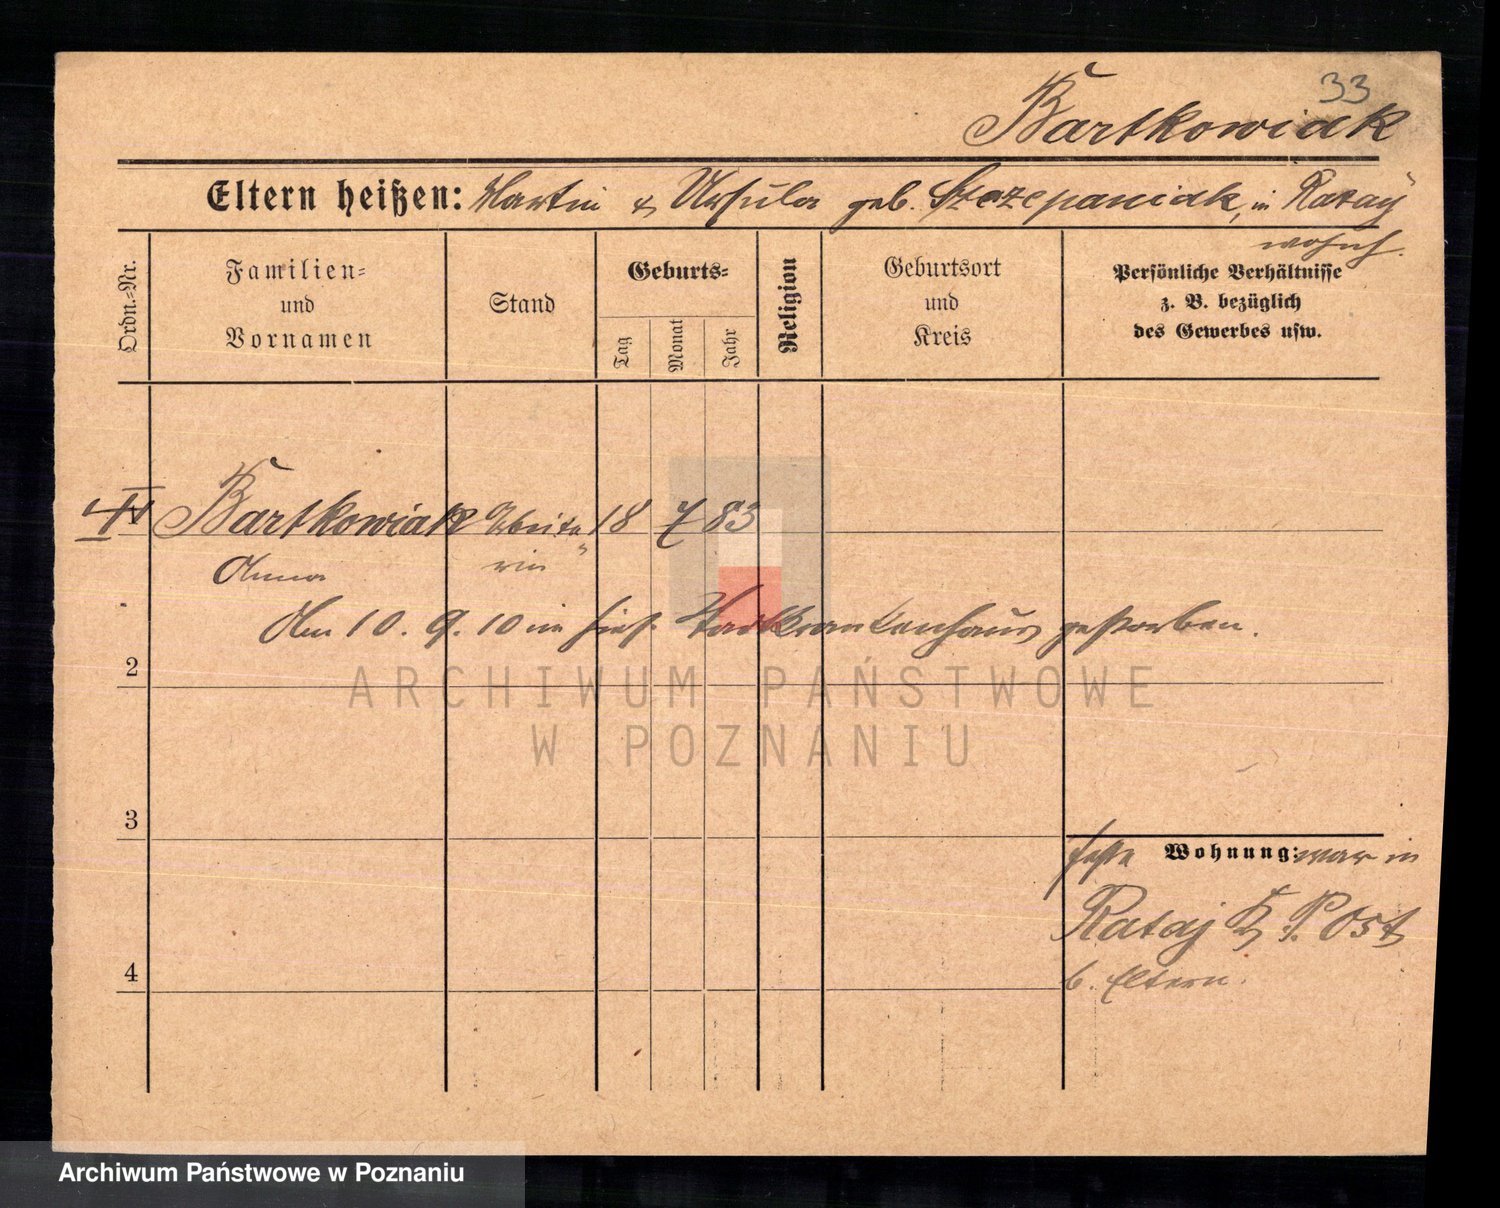 33
Bartkowiak
Eltern heißen: Martin & Ursula geb. Szczepaniak, in Rataj
wohnh.
Ordn.=Nr.
Familien=
und
Vornamen
Stand
Geburts=
Tag
Monat
Jahr
Religion
Geburtsort
und
Kreis
Persönliche Verhältnisse
z. B. bezüglich
des Gewerbes usw.
Bartkowiak Arbeite 18 7 83
Anna rin
Am 10. 9. 10 im hies. Stadtkrankenhaus gestorben.
2
3
feste Wohnung: war in
Rataj K P. Ost
4
b. Eltern.
ARCHIWUM PAŃSTWOWE
W POZNANIU
Archiwum Państwowe w Poznaniu